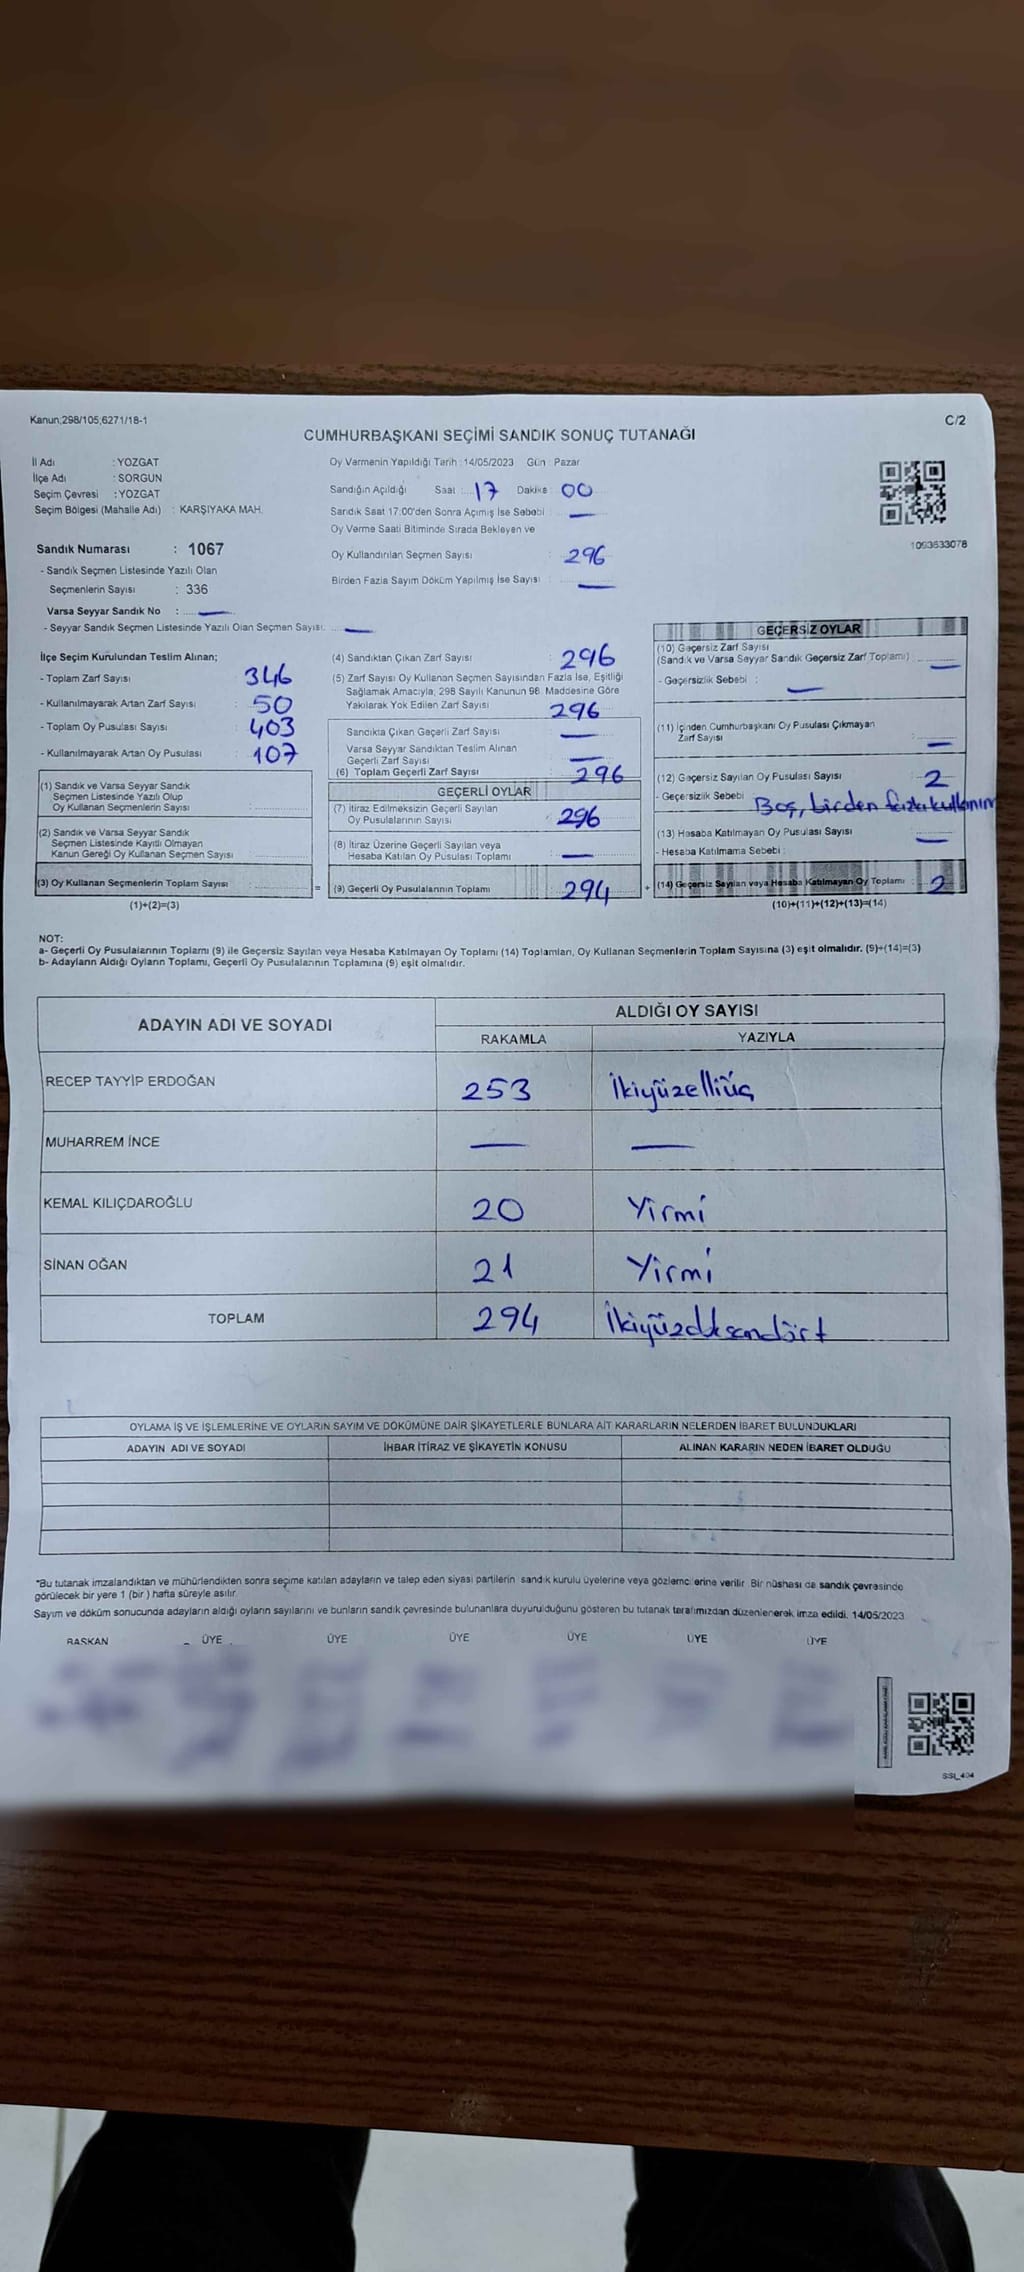 Kanun;298/105,6271/18-1
C/2
CUMHURBAŞKANI SEÇİMİ SANDIK SONUÇ TUTANAĞI
İl Adı : YOZGAT
İlçe Adı : SORGUN
Seçim Çevresi : YOZGAT
Seçim Bölgesi (Mahalle Adı) : KARŞIYAKA MAH.
Sandık Numarası : 1067
- Sandık Seçmen Listesinde Yazılı Olan
Seçmenlerin Sayısı : 336
Varsa Seyyar Sandık No : —
- Seyyar Sandık Seçmen Listesinde Yazılı Olan Seçmen Sayısı: —
Oy Vermenin Yapıldığı Tarih :14/05/2023 Gün : Pazar
Sandığın Açıldığı Saat : 17 Dakika : 00
Sandık Saat 17.00'den Sonra Açımış İse Sebebi : —
Oy Verme Saati Bitiminde Sırada Bekleyen ve
Oy Kullandırılan Seçmen Sayısı : 296
Birden Fazla Sayım Döküm Yapılmış İse Sayısı : —
1093633078
İlçe Seçim Kurulundan Teslim Alınan;
- Toplam Zarf Sayısı : 346
- Kullanılmayarak Artan Zarf Sayısı : 50
- Toplam Oy Pusulası Sayısı : 403
- Kullanılmayarak Artan Oy Pusulası : 107
(1) Sandık ve Varsa Seyyar Sandık
Seçmen Listesinde Yazılı Olup
Oy Kullanan Seçmenlerin Sayısı :
(2) Sandık ve Varsa Seyyar Sandık
Seçmen Listesinde Kayıtlı Olmayan
Kanun Gereği Oy Kullanan Seçmen Sayısı :
(3) Oy Kullanan Seçmenlerin Toplam Sayısı :
(1)+(2)=(3)
(4) Sandıktan Çıkan Zarf Sayısı : 296
(5) Zarf Sayısı Oy Kullanan Seçmen Sayısından Fazla İse, Eşitliği
Sağlamak Amacıyla, 298 Sayılı Kanunun 98. Maddesine Göre
Yakılarak Yok Edilen Zarf Sayısı : 296
Sandıkta Çıkan Geçerli Zarf Sayısı : —
Varsa Seyyar Sandıktan Teslim Alınan
Geçerli Zarf Sayısı : —
(6) Toplam Geçerli Zarf Sayısı : 296
GEÇERLİ OYLAR
(7) İtiraz Edilmeksizin Geçerli Sayılan
Oy Pusulalarının Sayısı : 296
(8) İtiraz Üzerine Geçerli Sayılan veya
Hesaba Katılan Oy Pusulası Toplamı : —
= (9) Geçerli Oy Pusulalarının Toplamı : 294
GEÇERSİZ OYLAR
(10) Geçersiz Zarf Sayısı
(Sandık ve Varsa Seyyar Sandık Geçersiz Zarf Toplamı) : —
- Geçersizlik Sebebi : —
(11) İçinden Cumhurbaşkanı Oy Pusulası Çıkmayan
Zarf Sayısı : —
(12) Geçersiz Sayılan Oy Pusulası Sayısı : 2
- Geçersizlik Sebebi : Boş, birden fazla kullanım
(13) Hesaba Katılmayan Oy Pusulası Sayısı : —
- Hesaba Katılmama Sebebi :
+ (14) Geçersiz Sayılan veya Hesaba Katılmayan Oy Toplamı : 2
(10)+(11)+(12)+(13)=(14)
NOT:
a- Geçerli Oy Pusulalarının Toplamı (9) ile Geçersiz Sayılan veya Hesaba Katılmayan Oy Toplamı (14) Toplamları, Oy Kullanan Seçmenlerin Toplam Sayısına (3) eşit olmalıdır. (9)+(14)=(3)
b- Adayların Aldığı Oyların Toplamı, Geçerli Oy Pusulalarının Toplamına (9) eşit olmalıdır.
ADAYIN ADI VE SOYADI
ALDIĞI OY SAYISI
RAKAMLA YAZIYLA
RECEP TAYYİP ERDOĞAN 253 İkiyüzelliüç
MUHARREM İNCE — —
KEMAL KILIÇDAROĞLU 20 Yirmi
SİNAN OĞAN 21 Yirmi
TOPLAM 294 İkiyüzdoksandört
OYLAMA İŞ VE İŞLEMLERİNE VE OYLARIN SAYIM VE DÖKÜMÜNE DAİR ŞİKAYETLERLE BUNLARA AİT KARARLARIN NELERDEN İBARET BULUNDUKLARI
ADAYIN ADI VE SOYADI İHBAR İTİRAZ VE ŞİKAYETİN KONUSU ALINAN KARARIN NEDEN İBARET OLDUĞU
*Bu tutanak imzalandıktan ve mühürlendikten sonra seçime katılan adayların ve talep eden siyasi partilerin sandık kurulu üyelerine veya gözlemcilerine verilir. Bir nüshası da sandık çevresinde
görülecek bir yere 1 (bir ) hafta süreyle asılır.
Sayım ve döküm sonucunda adayların aldığı oyların sayılarını ve bunların sandık çevresinde bulunanlara duyurulduğunu gösteren bu tutanak tarafımızdan düzenlenerek imza edildi. 14/05/2023
BAŞKAN ÜYE ÜYE ÜYE ÜYE ÜYE ÜYE
SSI_404